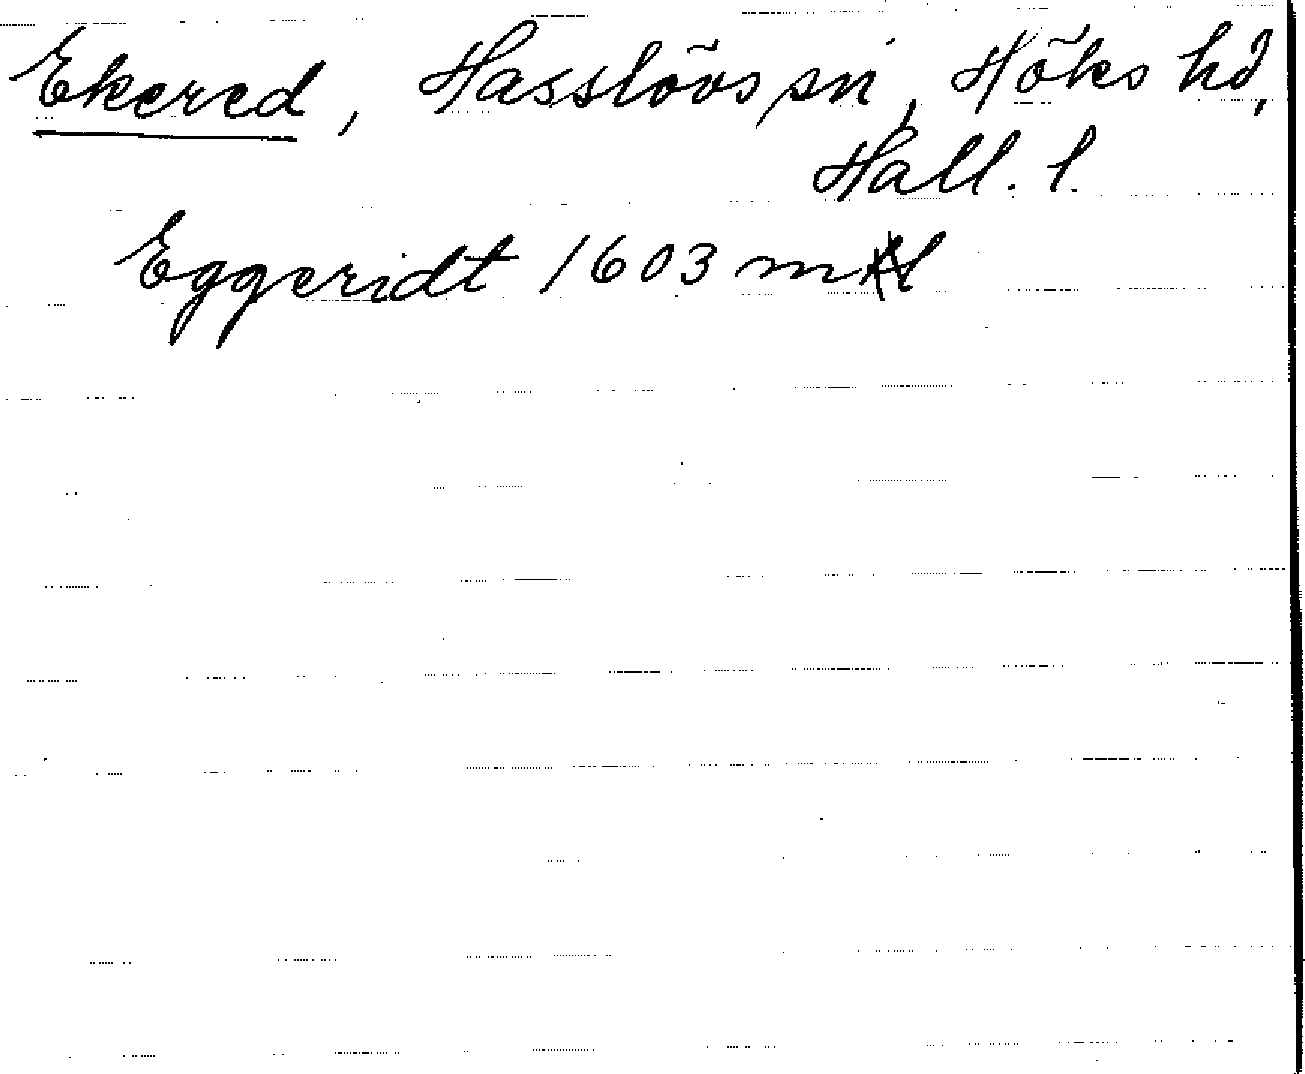 Ekered, Hasslövs sn, Höks hd,
Hall. l.
Eggeridt 1603